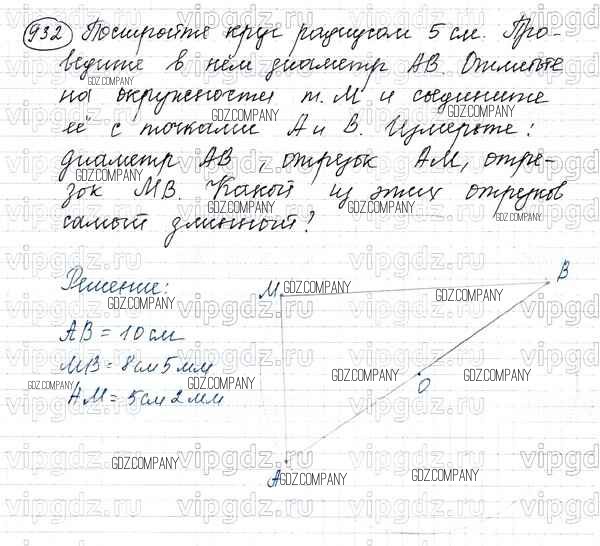 932 Постройте круг радиусом 5 см. Про-
ведите в нём диаметр АВ. Отметьте
на окружности т. М и соедините
её с точками А и В. Измерьте:
диаметр АВ, отрезок АМ, отре-
зок МВ. Какой из этих отрезков
самый длинный?
Решение:
АВ = 10 см
МВ = 8 см 5 мм
АМ = 5 см 2 мм
М
В
О
А
vipgdz.ru
GDZ.COMPANY